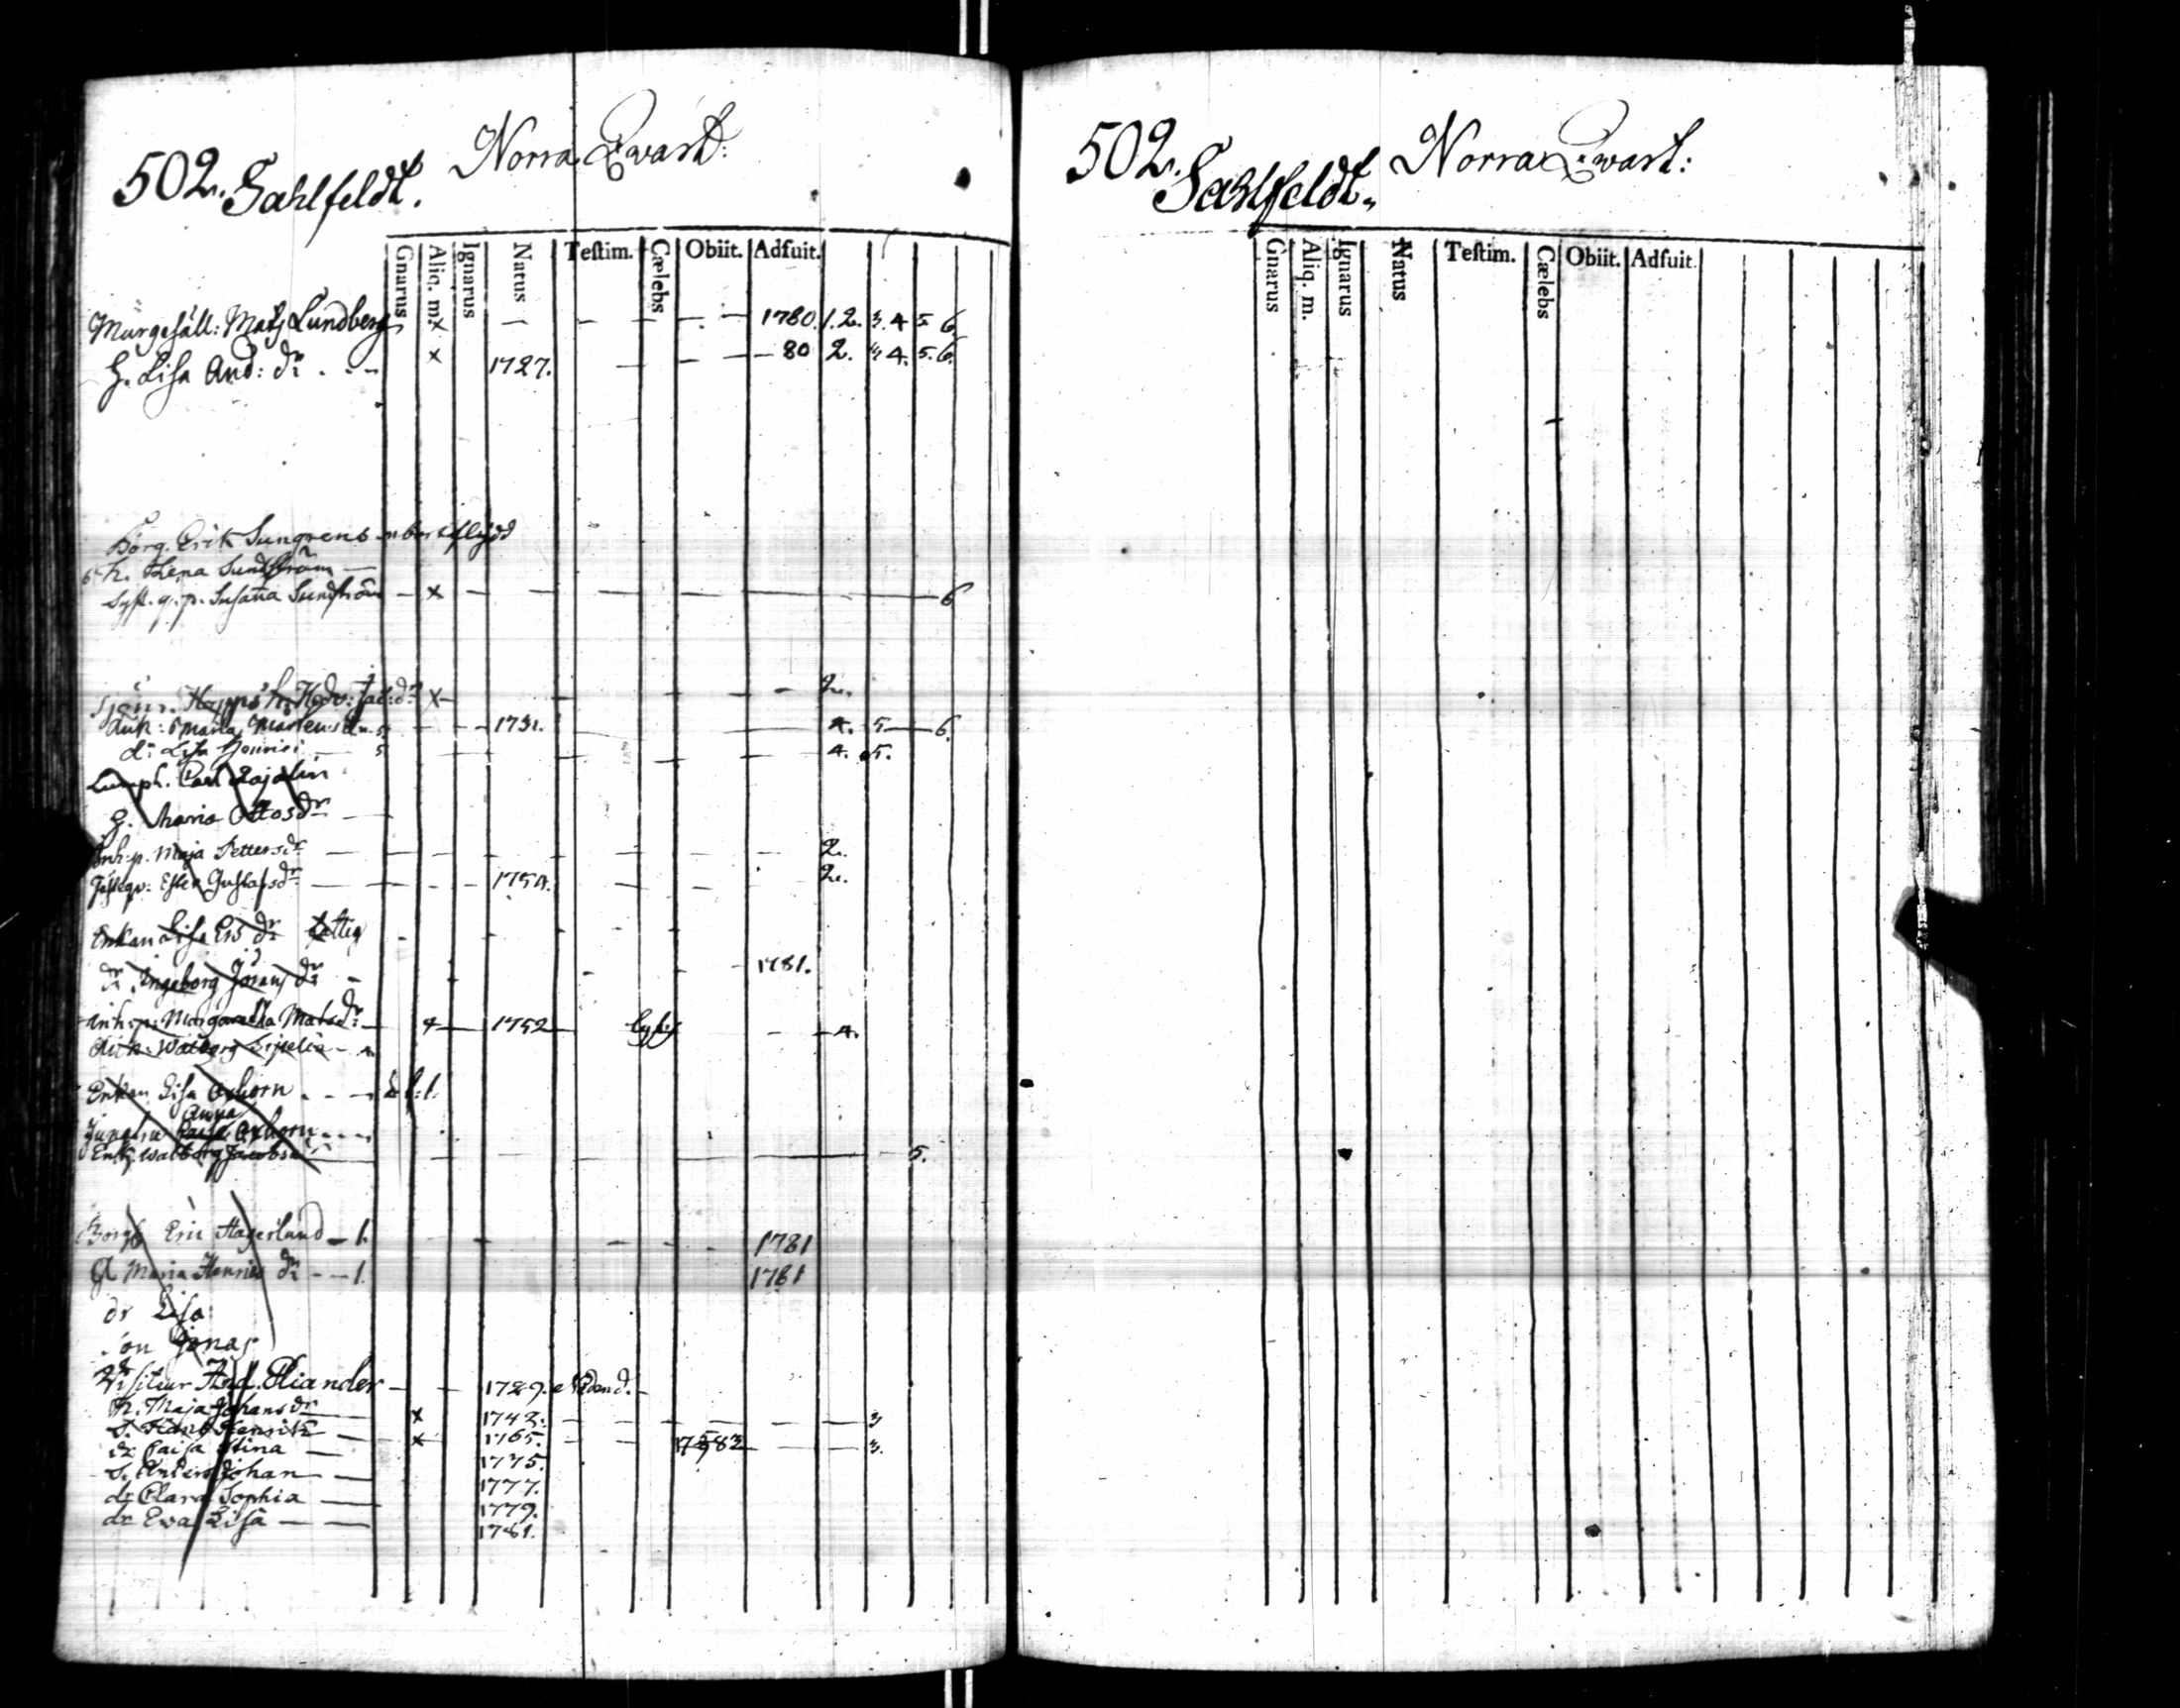 502. Sahlfeldt. Norra Qwart:
Gnarus Aliq. m. Ignarus Natus Testim. Cælebs Obiit. Adfuit.
Murgesäll: Mats Lundberg x — — — — — 1780. 1. 2. 3. 4 5 6
H. Lisa And: dr x 1727. — — — 80 2. 3 4. 5. 6.
Borg. Erik Sungrens bortflydd
h. Lena Sundström —
Syst. q. p. Susana Sundström — x — — — — — 6
Hedv: Jac: dr x — — — — 2.
Enk: Maria Mårtensdr 5 — — 1731. — — 4. 5 — 6.
dr Lisa 5 — — — — 4. 5.
Carl Rajalin
H. Maria Ottosdr —
Inh. p. Maja Pettersdr — — — — — 2.
Ester Gustafsdr — — — 1754. — — — 2.
Enkan Lisa Ers dr fattig
dr Ingeborg Görans dr — 1781.
Inh. p: Margaretha Matsdr — 1752 — 4.
Enk: Walborg
Enkan Lisa Oxhorn
Anna
Jungfru Caisa Oxhorn
Enk. Walborg Jacobsdr — — — — — 5.
Borg Eric Hagerlund — 1. — — — 1781
H Maria Henrics dr — — 1. 1781
dr Lisa
son Jonas
Visiteur And. Eliander — — 1729. Nådend. —
h. Maja Johansdr — x 1742. — — — — — 3
S. Hans Henrik — x 1765. — — 1782 — — 3.
dr Caisa Stina — 1775.
S. Anders Johan — 1777.
dr Clara Sophia — 1779.
dr Ewa Lisa — — 1781.
502. Sahlfeldt. Norra Qwart:
Gnarus Aliq. m. Ignarus Natus Testim. Cælebs Obiit. Adfuit.